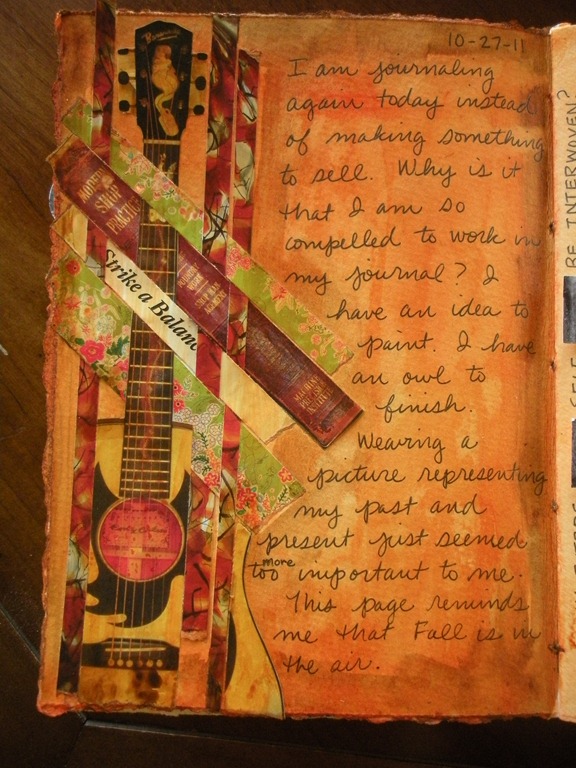 10-27-11
I am journaling
again today instead
of making something
to sell. Why is it
that I am so
compelled to work in
my journal? I
have an idea to
paint. I have
an owl to
finish.
Wearing a
picture representing
my past and
present just seemed
too more important to me.
This page reminds
me that Fall is in
the air.
MODERN
SHOP
PRACTICE
Strike a Balanc
BE INTERWOVEN?